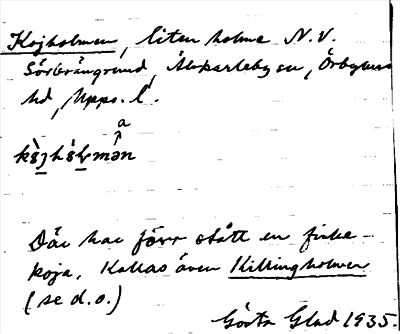 Kojholmen, liten holme N.V.
Sörbrångrund, Älvkarleby sn, Örbyhus
hd, Upps. l.
a
Där har förr stått en fiske-
koja. Kallas även Killingholmen
(se d.o.)
Gösta Glad 1935.